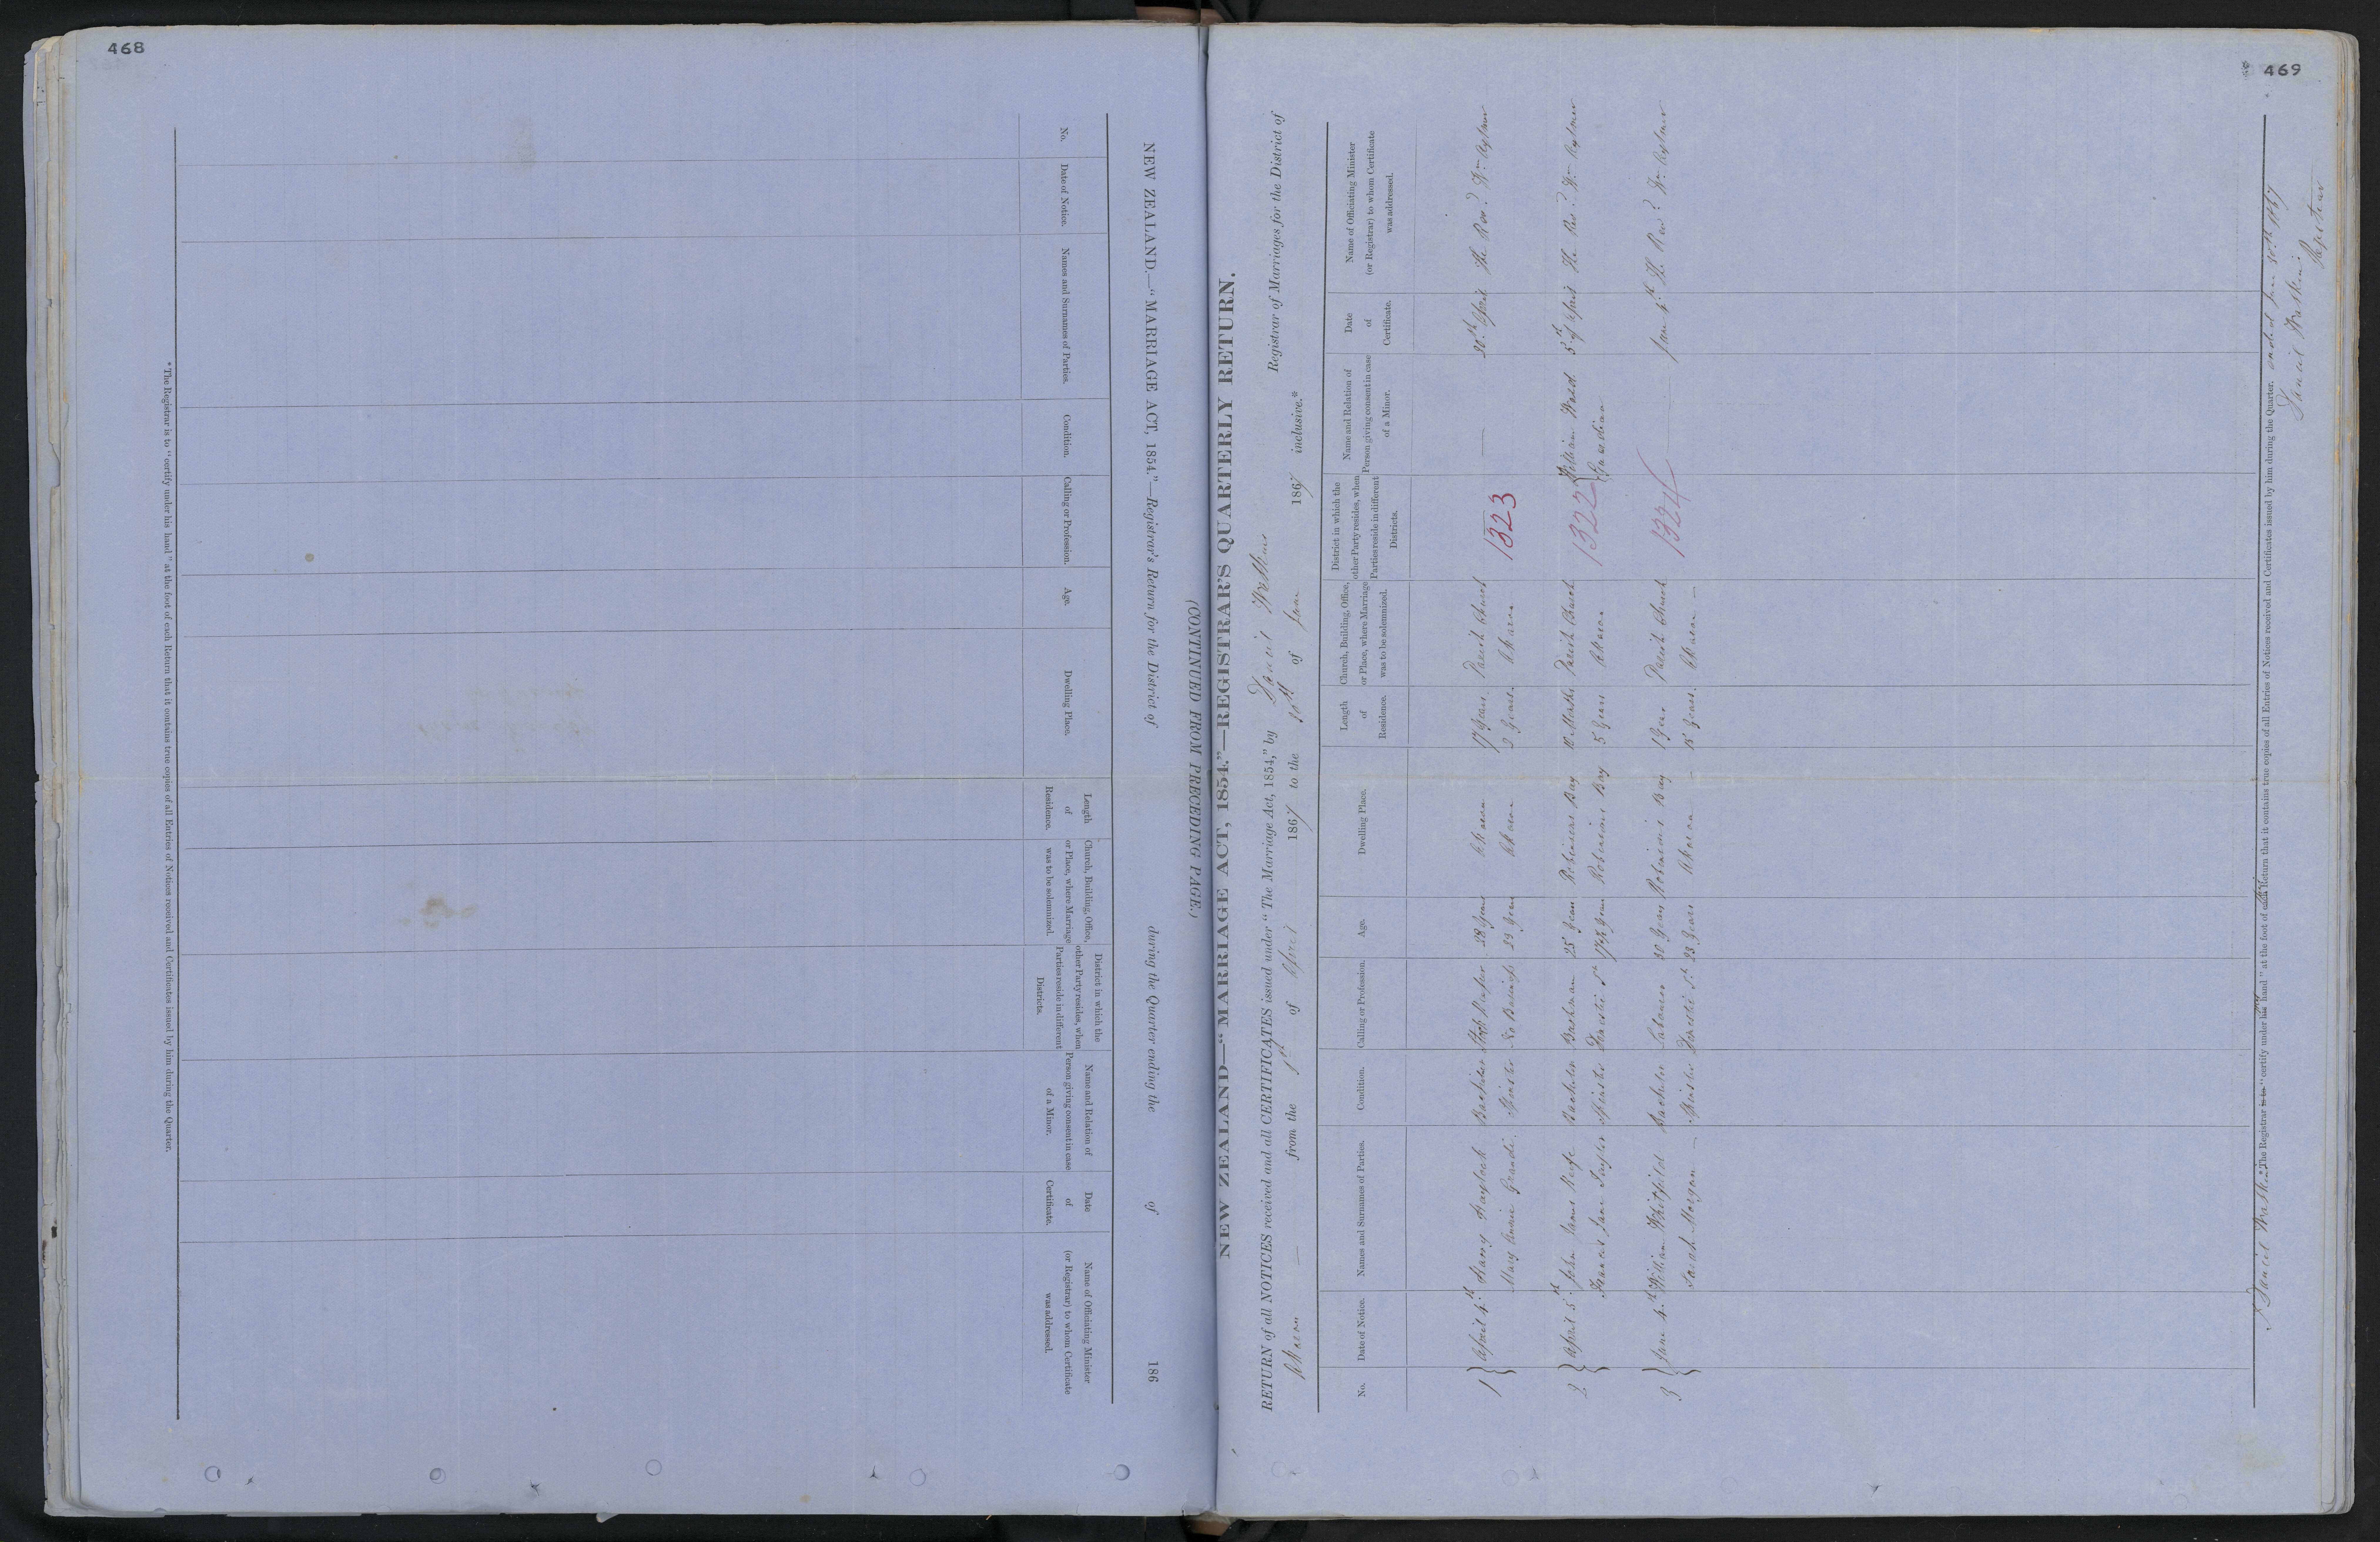 468
NEW ZEALAND.—“MARRIAGE ACT, 1854.”—Registrar's Return for the District of during the Quarter ending the of 186
(CONTINUED FROM PRECEDING PAGE.)
No. Date of Notice. Names and Surnames of Parties. Condition. Calling or Profession. Age. Dwelling Place. Length of Residence. Church, Building, Office, or Place, where Marriage was to be solemnized. District in which the other Party resides, when Parties reside in different Districts. Name and Relation of Person giving consent in case of a Minor. Date of Certificate. Name of Officiating Minister (or Registrar) to whom Certificate was addressed.
* The Registrar is to “certify under his hand” at the foot of each Return that it contains true copies of all Entries of Notices received and Certificates issued by him during the Quarter.
469
NEW ZEALAND—“MARRIAGE ACT, 1854.”—REGISTRAR'S QUARTERLY RETURN.
RETURN of all NOTICES received and all CERTIFICATES issued under “The Marriage Act, 1854,” by Daniel Watkins Registrar of Marriages for the District of
Akaroa — from the 1st of April 1867 to the 30th of June 1867 inclusive.*
No. Date of Notice. Names and Surnames of Parties. Condition. Calling or Profession. Age. Dwelling Place. Length of Residence. Church, Building, Office, or Place, where Marriage was to be solemnized. District in which the other Party resides, when Parties reside in different Districts. Name and Relation of Person giving consent in case of a Minor. Date of Certificate. Name of Officiating Minister (or Registrar) to whom Certificate was addressed.
1 April 4th Harry Haylock Bachelor 28 Years Akaroa 17 Years Parish Church 1323 — April The Revd. Wm Aylmer
Mary Annie Grandi Spinster No Business Years Akaroa 3 Years Akaroa
2 April 5th John James Bachelor 25 Years Robinsons Bay 10 Months Parish Church 1322 William Wood 5th of April The Revd. Wm Aylmer
Frances Jane Taylor Spinster Domestic St 17½ Years Robinsons Bay 5 Years Akaroa Guardian
3 June 4th William Whitfield Bachelor Labourer 30 Years Robinsons Bay 1 Year Parish Church 1324 — June 4th The Revd. Wm Aylmer
Sarah Morgan — Spinster Domestic St 23 Years Akaroa — 15 Years Akaroa —
I Daniel Watkins * The Registrar is to “certify under his my hand” at the foot of each this Return that it contains true copies of all Entries of Notices received and Certificates issued by him during the Quarter. ended June 30th 1867
Daniel Watkins
Registrar